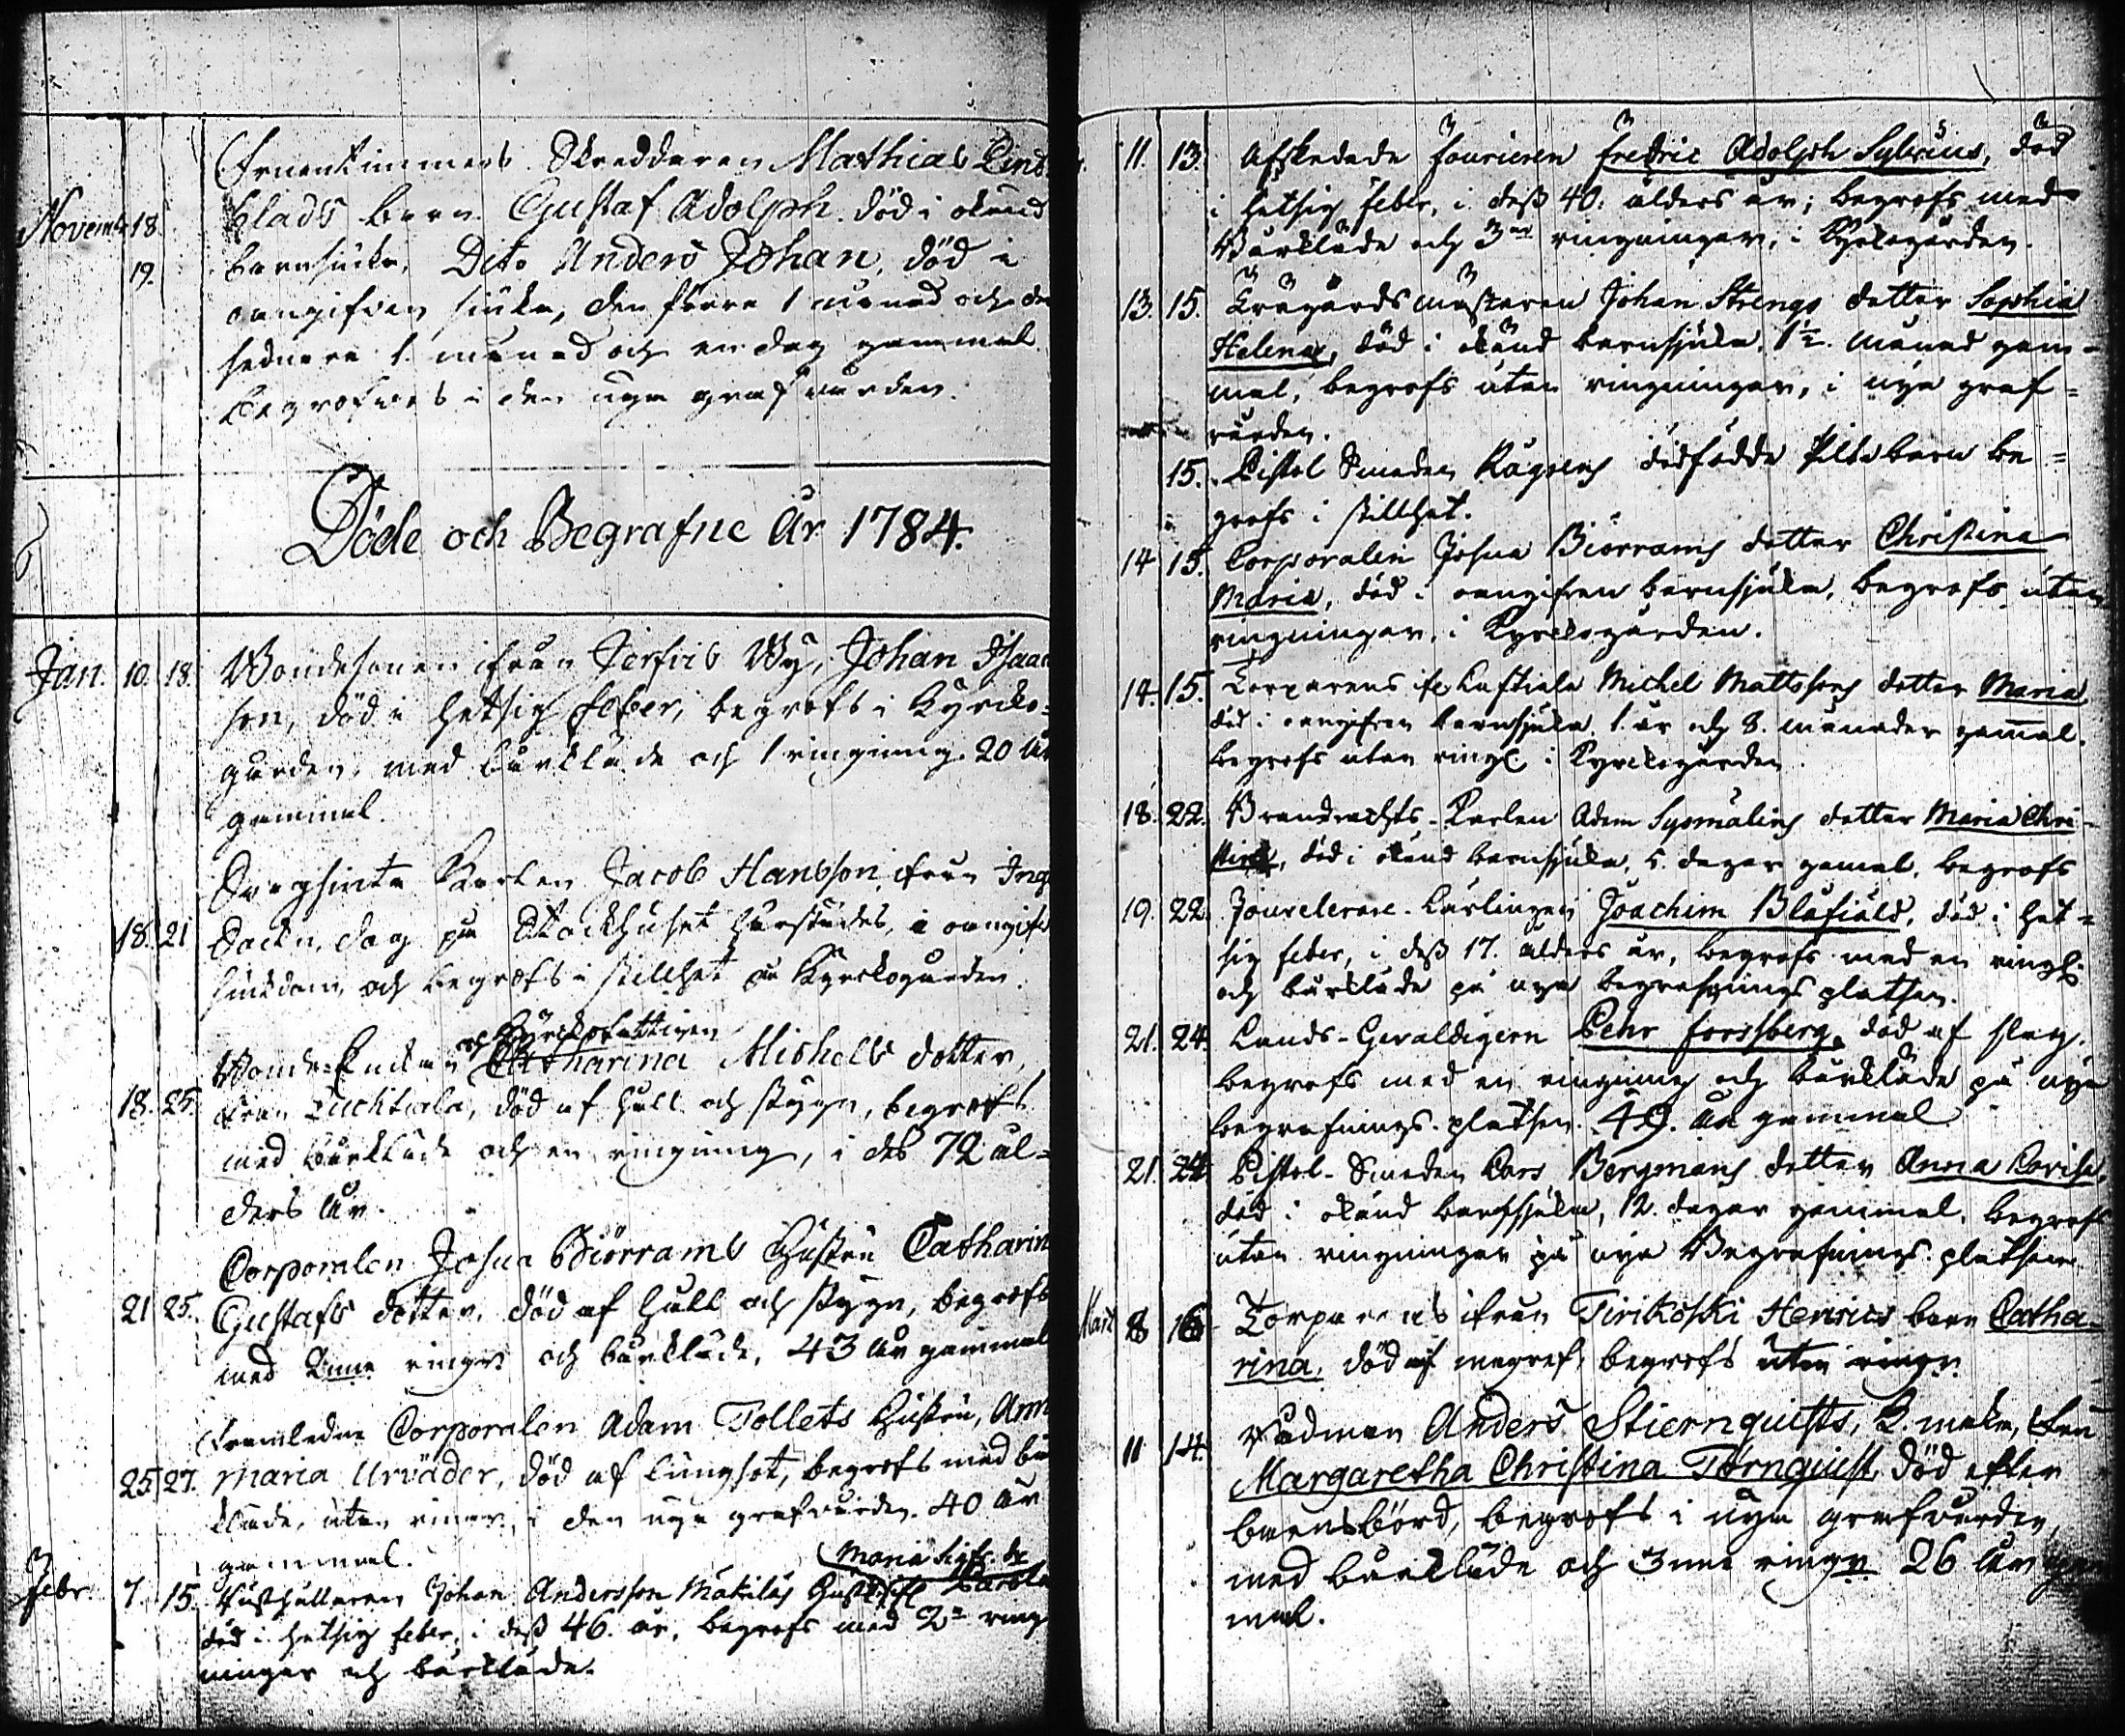 Fruentimmers Skreddaren Mathias Lind
Novemb. 18. blads barn Gustaf Adolph. död i okänd
19. barnsiuka, Dito Anders Johan, död i
oangifven siuka, den förra 1 månad och den
sednare 1. månad och en dag gammal.
begrofwes i den nya grafvården.
Döde och Begrafne År 1784.
Jan. 10. 18. Bondesonen ifrån Jerfvis By, Johan Isaac
son, död i hetsig feber, begrofs i Kyrcko-
gården, med bårkläde och 1 ringning. 20 år
gammal.
Swagsinta Karlen Jacob Hansson, ifrån Ing
18. 21 dog på Stockhuset härstädes, i oangifv
siukdom, och begrofs i stillhet på Kyrckogården.
och Kyrckofattigen
Bonde-Enkan Catharina Michels dotter,
18. 25. från Luchtiala, död af håll och stygn, begrofs
med bårkläde och en ringning, i des 72 ål-
ders år.
Corporalen Josua Biörrams Hustru Catharin
21 25. Gustafs dotter, död af håll och stygn, begrofs
med 2nne ringn och bårkläde, 43 år gammal
Framledne Corporalen Adam Tollets Hustru, Ann
25. 27. Maria Urväder, död af lungsot, begrofs med bår
kläde, utan ringn, i den nya grafvården. 40 år
gammal.
Maria Sigfr. dr
Febr. 7. 15. Johan Andersson Mäkiläs Hustru
död i hetsig feber, i dess 46. år, begrofs med 2ne ring
ningar och bårkläde.
11. 13. Afskedade fourieren Fredric Adolph Sylvius, död
i hetsig feber, i dess 40. ålders år; begrofs med
Bårkläde och 3ne ringningar, i Kyrkogården.
13. 15. Trägårdsmästaren Johan Strengs dotter Sophia
Helena, död i okänd barnsjuka. 1½ månad gam-
mal, begrofs utan ringningar, i nya graf-
vården.
15. Pistol Smeden Rågrens dödfödda Piltebarn be-
grofs i stillhet.
14 15. Corporalen Josua Biörrams dotter Christina
Maria, död i oangifven barnsjuka, begrofs utan
ringningar, i Kyrckogården.
14. 15. Torparens Michel Mattssons dotter Maria
död i oangifven barnsjuka, 1. år och 8. månader gamal.
begrofs utan ringn i Kyrckogården.
18. 22. Brandvachts-Karlen Adam Sysmälins dotter Maria Chri-
stina, död i okänd barnsjuka, 5. dagar gamal. begrofs
19. 22. Jouvelerare-Lärlingen Joachim Blåfiäld, död i het-
sig feber, i dess 17. ålders år, begrofs med en ringn
och bårkläde på nya begrafnings platsen.
21. 24. Lands-Gevaldigern Pehr Forssberg, död af slag.
begrofs med en ringning och bårkläde på nya
begrafnings-platsen. 49. år gammal
21. 24. Pistol-Smeden Lars Bergmans dotter Anna Lovisa,
död i okänd barnsjuka, 12. dagar gammal. begrofs
utan ringningar på nya Begrafnings platsen.
Mart. 8 16 Torparens ifrån Tirikoski Henrics barn Catha-
rina, död af begrofs utan ringn.
11 14. Rådman Anders Stiernquists, K. maka, Fru
Margaretha Christina Törnquist, död efter
barnsbörd, begrofs i nya grafvården,
med bårkläde och 3nne ringn. 26 år gam
mal.